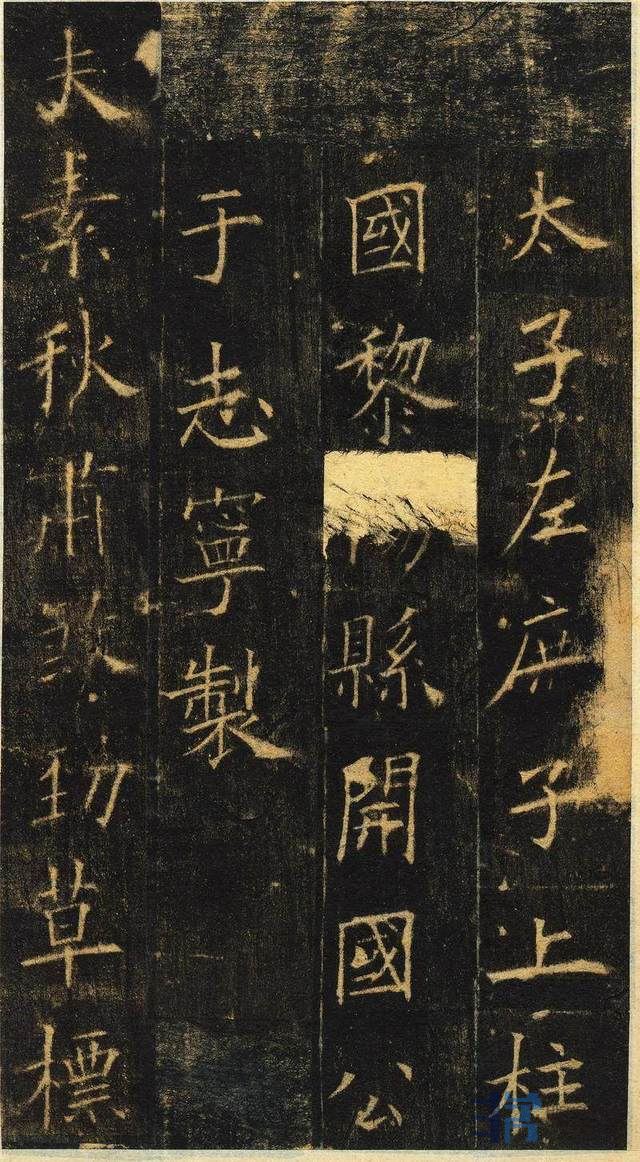 太子左庶子上柱
國黎縣開國公
于志寧製
夫素秋肅煞勁草標